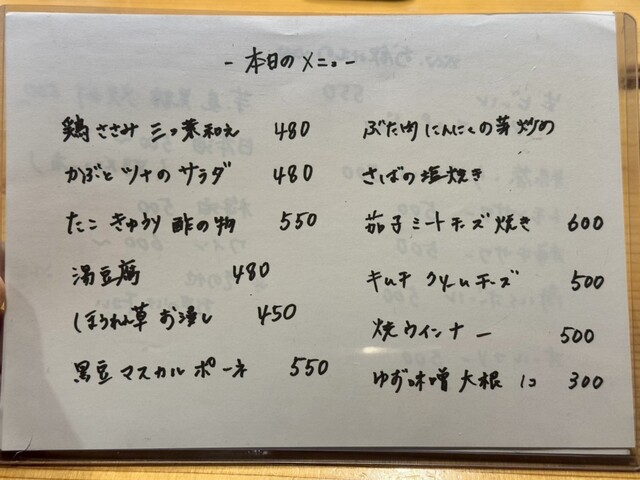 - 本日のメニュー -
鶏ささみ 三つ葉和え 480
かぶと ツナの サラダ 480
たこ きゅうり 酢の物 550
湯豆腐 480
ほうれん草 お浸し 450
黒豆 マスカルポーネ 550
ぶた肉 にんにくの芽 炒め
さばの塩焼き
茄子 ミートチーズ焼き 600
キムチ クリームチーズ 500
焼ウインナー 500
ゆず味噌 大根 1コ 300